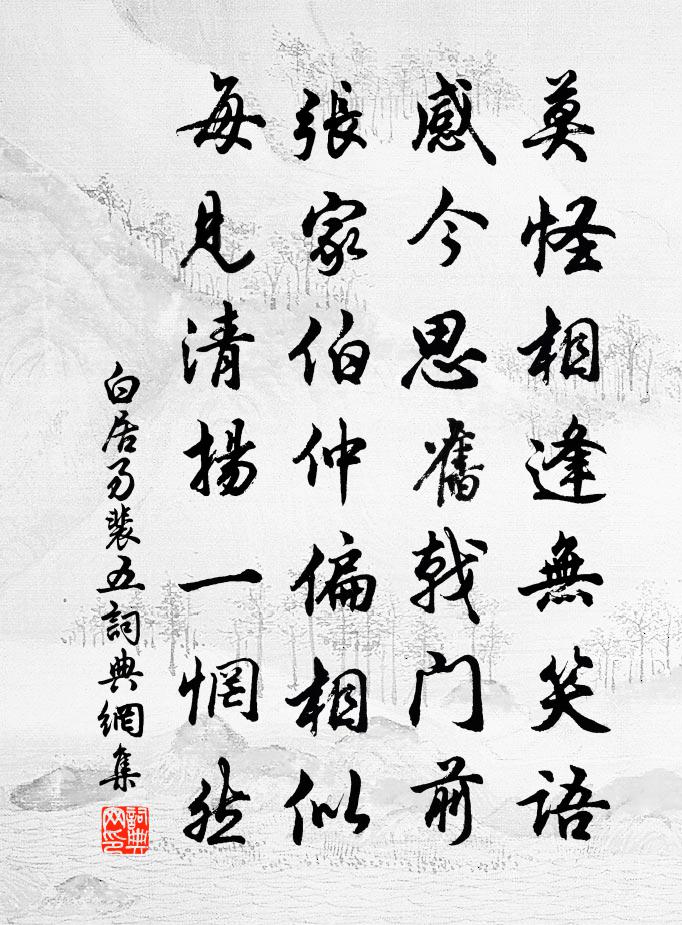 莫怪相逢無笑語
感今思舊戟门前
張家伯仲偏相似
每見清揚一惘然
白居易裴五詞典網集
詞典网印